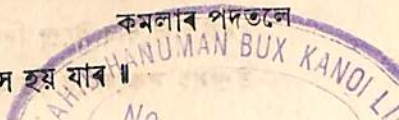 কমলাৰ পদতলে
স হয় যাৰ ॥
HANUMAN BUX KANOI LI
No